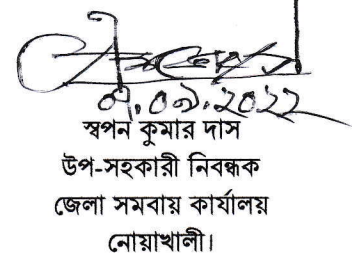 ০৭.০৯.২০২২
স্বপন কুমার দাস
উপ-সহকারী নিবন্ধক
জেলা সমবায় কার্যালয়
নোয়াখালী।